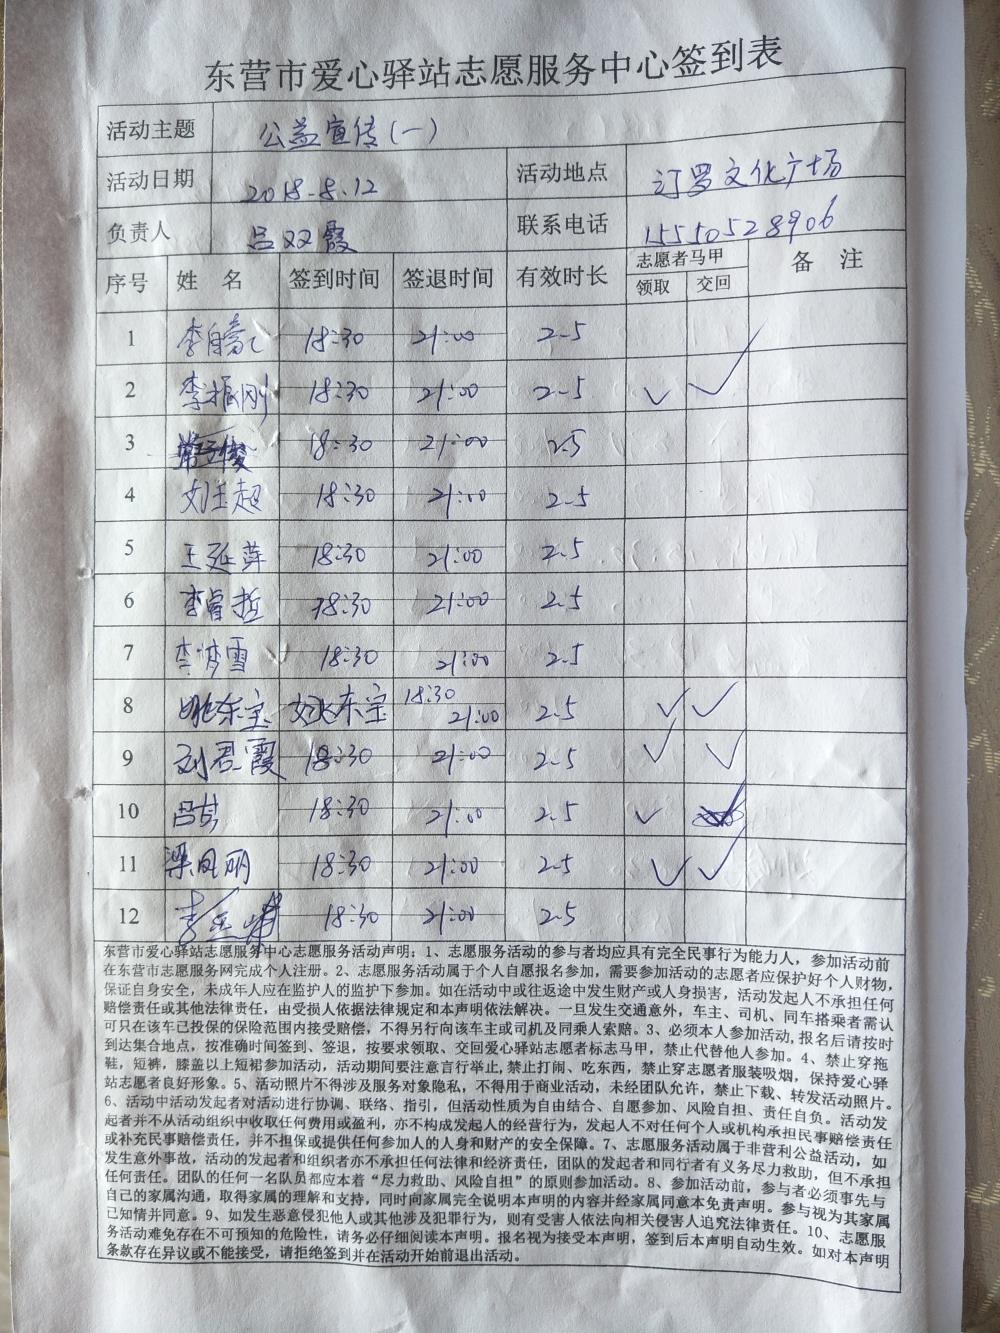 东营市爱心驿站志愿服务中心签到表
活动主题 公益宣传(一)
活动日期 2018.8.12 活动地点 汀罗文化广场
负责人 吕双霞 联系电话 15550528906
序号 姓名 签到时间 签退时间 有效时长 志愿者马甲 备注
领取 交回
1 18:30 21:00 2.5
2 李振刚 18:30 21:00 2.5 ✓ ✓
3 18:30 21:00 2.5
4 刘玉超 18:30 21:00 2.5
5 王延萍 18:30 21:00 2.5
6 李睿哲 18:30 21:00 2.5
7 李梦雪 18:30 21:00 2.5
8 姚东宝 姚东宝 18:30 21:00 2.5 ✓ ✓
9 刘君霞 18:30 21:00 2.5 ✓ ✓
10 18:30 21:00 2.5 ✓
11 梁凤丽 18:30 21:00 2.5 ✓ ✓
12 18:30 21:00 2.5
东营市爱心驿站志愿服务中心志愿服务活动声明：1、志愿服务活动的参与者均应具有完全民事行为能力人，参加活动前
在东营市志愿服务网完成个人注册。2、志愿服务活动属于个人自愿报名参加，需要参加活动的志愿者应保护好个人财物，
保证自身安全，未成年人应在监护人的监护下参加。如在活动中或往返途中发生财产或人身损害，活动发起人不承担任何
赔偿责任或其他法律责任，由受损人依据法律规定和本声明依法解决。一旦发生交通意外，车主、司机、同车搭乘者需认
可只在该车已投保的保险范围内接受赔偿，不得另行向该车主或司机及同乘人索赔。3、必须本人参加活动,报名后请按时
到达集合地点，按准确时间签到、签退，按要求领取、交回爱心驿站志愿者标志马甲，禁止代替他人参加。4、禁止穿拖
鞋，短裤，膝盖以上短裙参加活动，活动期间要注意言行举止,禁止打闹、吃东西，禁止穿志愿者服装吸烟，保持爱心驿
站志愿者良好形象。5、活动照片不得涉及服务对象隐私，不得用于商业活动，未经团队允许，禁止下载、转发活动照片。
6、活动中活动发起者对活动进行协调、联络、指引，但活动性质为自由结合、自愿参加、风险自担、责任自负。活动发
起者并不从活动组织中收取任何费用或盈利，亦不构成发起人的经营行为，发起人不对任何个人或机构承担民事赔偿责任
或补充民事赔偿责任，并不担保或提供任何参加人的人身和财产的安全保障。7、志愿服务活动属于非营利公益活动，如
发生意外事故，活动的发起者和组织者亦不承担任何法律和经济责任，团队的发起者和同行者有义务尽力救助，但不承担
任何责任。团队的任何一名队员都应本着“尽力救助、风险自担”的原则参加活动。8、参加活动前，参与者必须事先与
自己的家属沟通，取得家属的理解和支持，同时向家属完全说明本声明的内容并经家属同意本免责声明。参与视为其家属
已知情并同意。9、如发生恶意侵犯他人或其他涉及犯罪行为，则有受害人依法向相关侵害人追究法律责任。10、志愿服
务活动难免存在不可预知的危险性，请务必仔细阅读本声明。报名视为接受本声明，签到后本声明自动生效。如对本声明
条款存在异议或不能接受，请拒绝签到并在活动开始前退出活动。